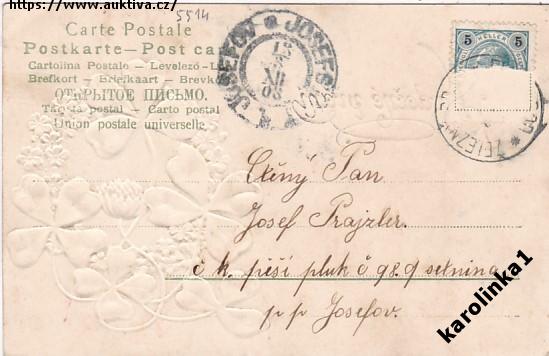 https://www.auktiva.cz/
5514
Carte Postale
Postkarte — Post ca
Cartolina Postale — Levelező-L
Brefkort — Briefkaart — Brevko
ОТКРЫТОЕ ПИСЬМО.
Tarjeta postal — Carto postal
Union postale universelle
JOSEFOV * JOSEFS
5 HELLER 5
Ctěný Pan
Josef Prajzler.
č k. pěší pluk č 98. 9 setnina
p p Josefov.
karolinka1